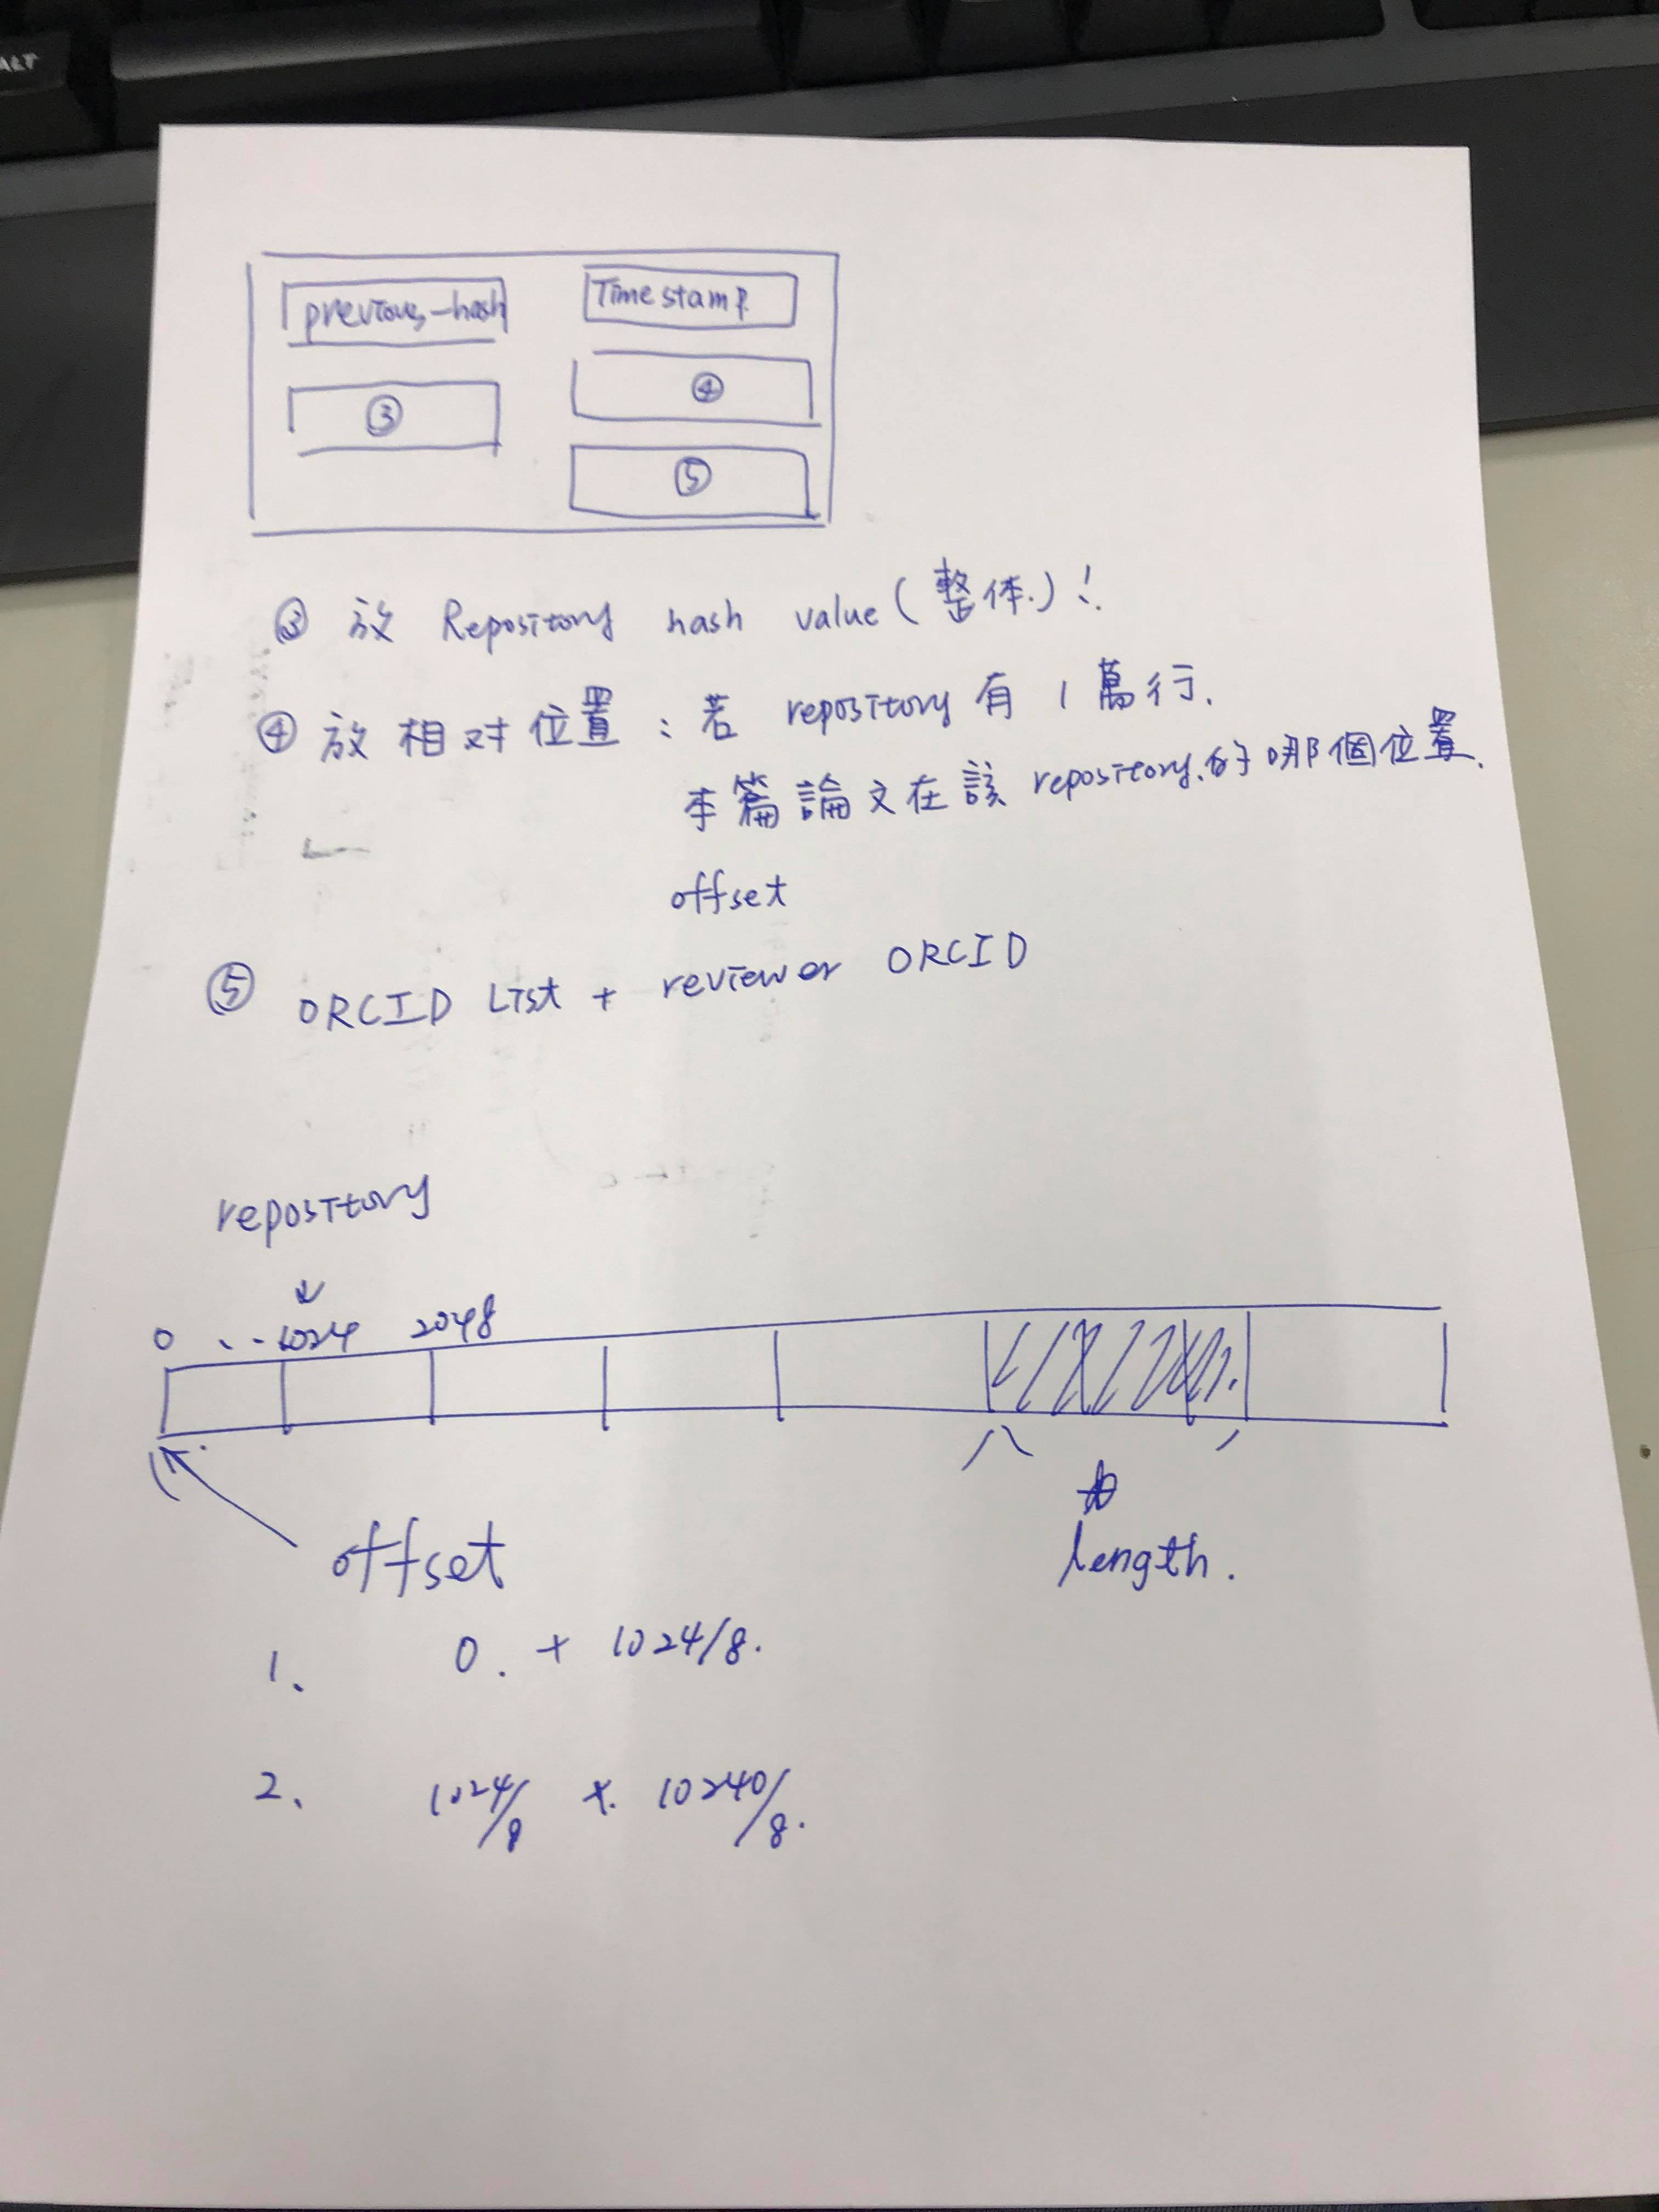 ALT
previous-hash
Timestamp
③
④
⑤
③ 放 Repository hash value (整体)!
④ 放相对位置:若 repository 有 1 萬行.
本篇論文在該 repository 的哪個位置.
offset
⑤ ORCID List + reviewer ORCID
repository
0 ... 1024 2048
offset
length.
1、 0. + 1024/8.
2、 1024/8 +. 10240/8.